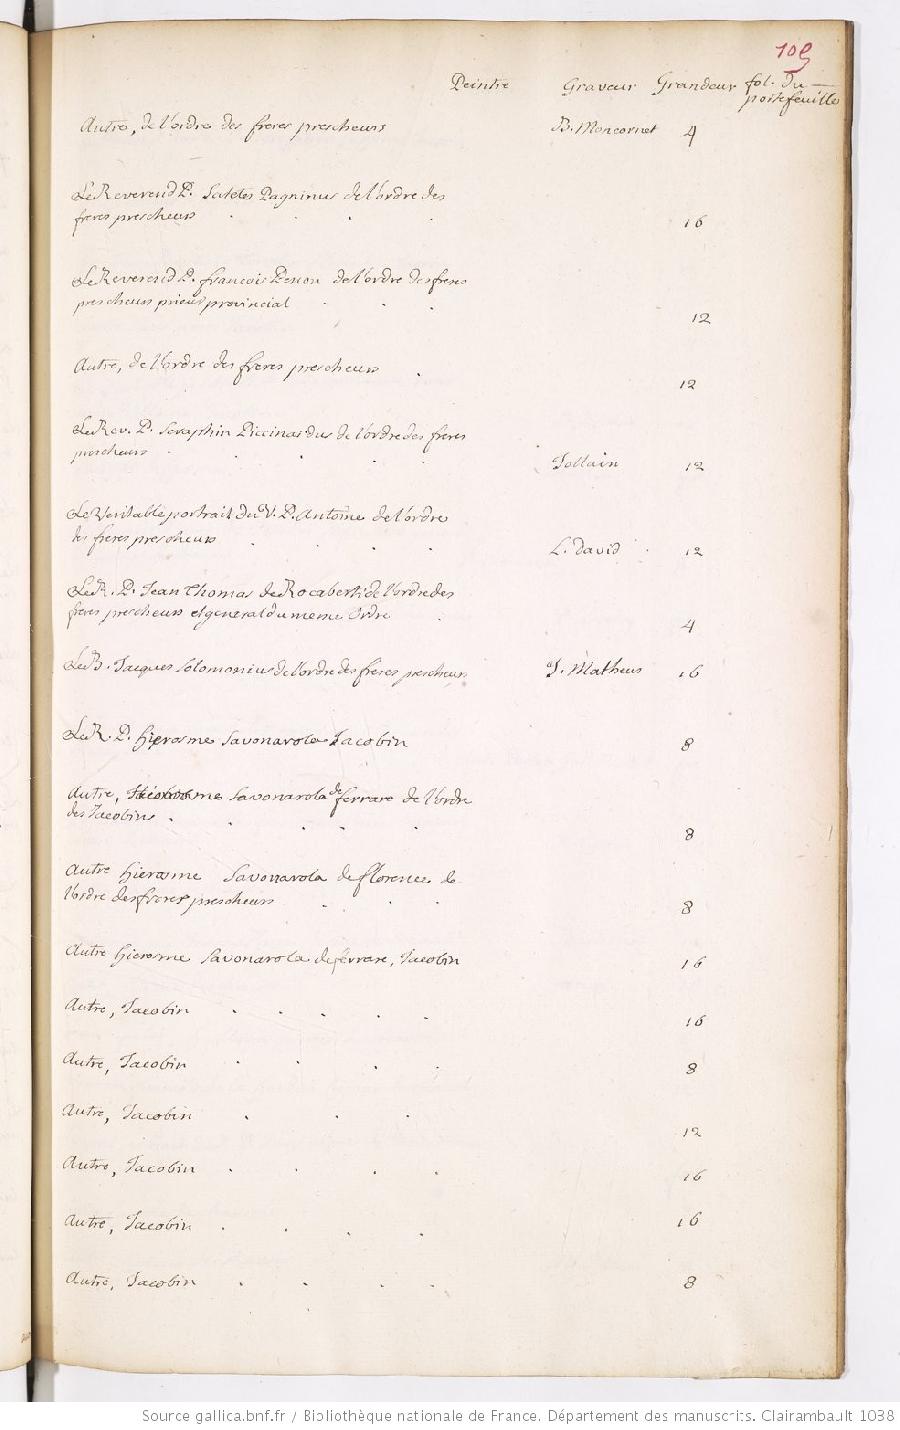 109
Peintre Graveur Grandeur fol. du
portefeuille
Autre, de l'ordre des freres prescheurs B. Moncornet 4
Le Reverend P. Sactes Pagninus de l'ordre des
freres prescheurs 16
Le Reverend P. francois Penon de l'ordre des freres
prescheurs prieur provincial 12
Autre, de l'ordre des freres prescheurs 12
Le Rev. P. Seraphin Piccinardus de l'ordre des freres
prescheurs Jollain 12
Le Veritable portrait du V. P. Antoine de l'ordre
des freres prescheurs L. David 12
Le R. P. Jean Thomas de Rocaberti de l'ordre des
freres prescheurs et general du meme Ordre 4
Le B. Jacques Solomonius de l'ordre des freres prescheurs J. Matheus 16
Le R. P. hierosme Savonarola Jacobin 8
Autre, hierosme Savonarola de ferrare de l'ordre
des Jacobins 8
Autre hierosme Savonarola de florence de
l'ordre des freres prescheurs 8
Autre hierosme Savonarola de ferrare, Jacobin 16
Autre, Jacobin 16
Autre, Jacobin 8
Autre, Jacobin 12
Autre, Jacobin 16
Autre, Jacobin 16
Autre, Jacobin 8
Source gallica.bnf.fr / Bibliothèque nationale de France. Département des manuscrits. Clairambault 1038